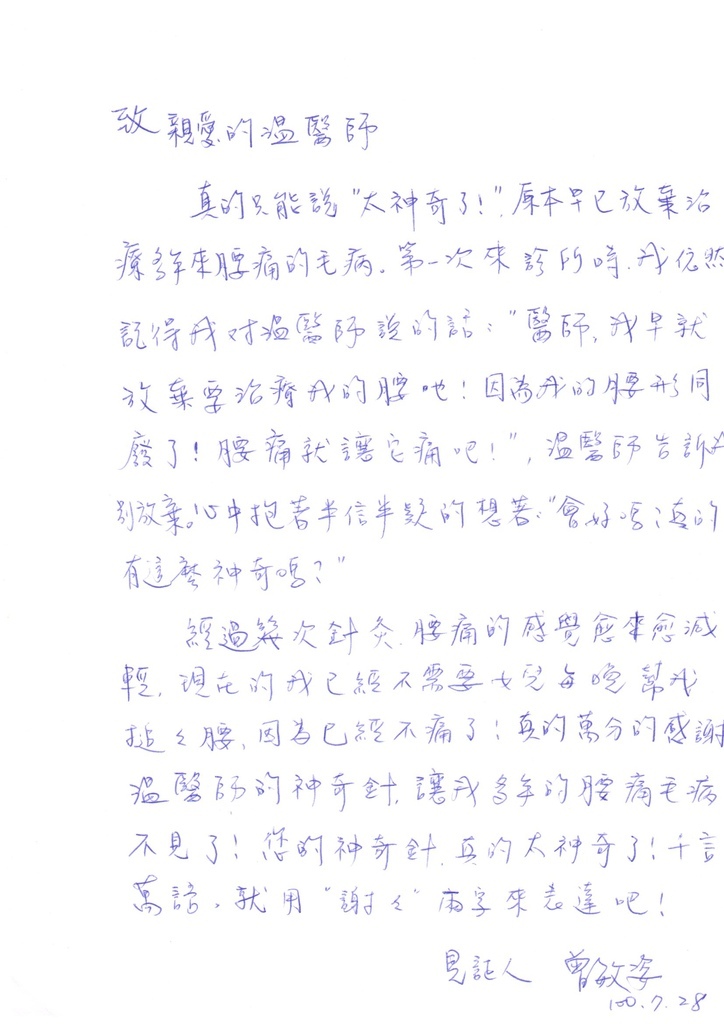 致 親愛的溫醫師
真的只能說"太神奇了!",原本早已放棄治
療多年來腰痛的毛病。第一次來診所時,我依然
記得我對溫醫師說的話:"醫師,我早就
放棄要治療我的腰吔!因為我的腰形同
廢了!腰痛就讓它痛吧!",溫醫師告訴我
別放棄。心中抱著半信半疑的想著:"會好嗎?真的
有這麼神奇嗎?"
經過幾次針灸,腰痛的感覺愈來愈減
輕,現在的我已經不需要女兒每晚幫我
搥々腰,因為已經不痛了!真的萬分的感謝
溫醫師的神奇針,讓我多年的腰痛毛病
不見了!您的神奇針,真的太神奇了!千言
萬語,就用"謝々"兩字來表達吧!
見証人 曾敏姿
100.7.28